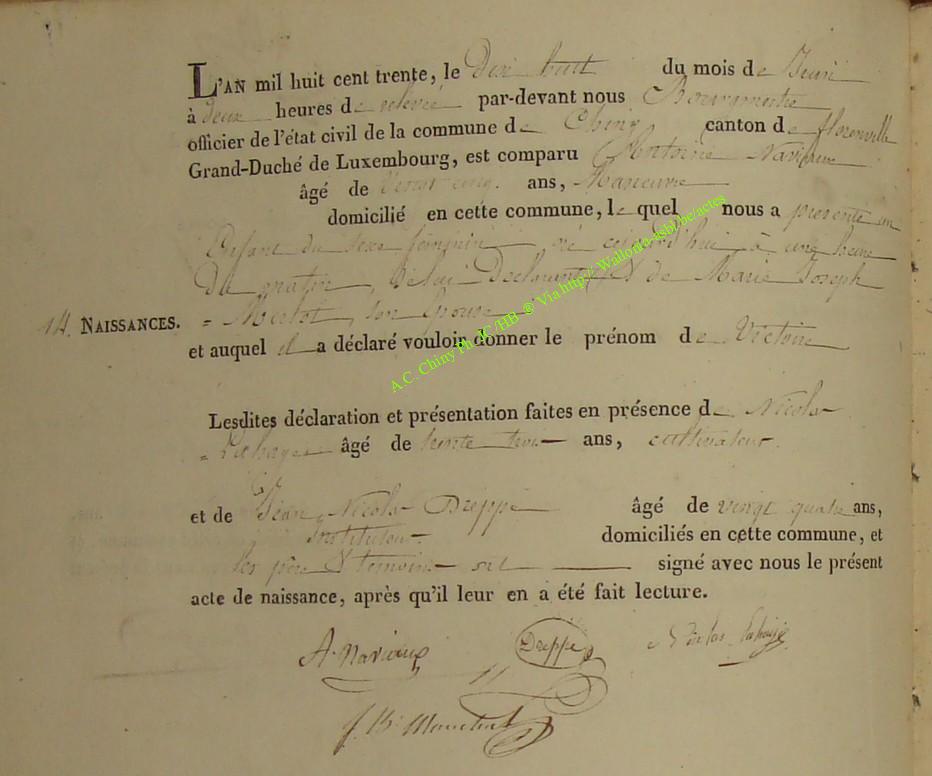 L'AN mil huit cent trente, le Dix huit du mois de Juin
à deux heures de relevée par-devant nous Bourgmestre
officier de l'état civil de la commune de Chiny canton de florenville
Grand-Duché de Luxembourg, est comparu Antoine
âgé de vingt cinq ans, Manœuvre
domicilié en cette commune, le quel nous a présenté un
Enfant du sexe féminin, né cejourd'hui à une heure
du matin, de lui Déclarant & de Marie Joseph
14. NAISSANCES. = son Epouse
et auquel il a déclaré vouloir donner le prénom de Victoire
Lesdites déclaration et présentation faites en présence de Nicolas
= Lahaye âgé de trente trois ans, cultivateur
et de Jean Nicolas Dreppe âgé de vingt quatre ans,
Instituteur domiciliés en cette commune, et
les père & témoins ont signé avec nous le présent
acte de naissance, après qu'il leur en a été fait lecture.
A. Dreppe Nicolas Lahaye
A.C. Chiny Ph JC /HB @ Via http:// Wallonia-asbl.be/actes